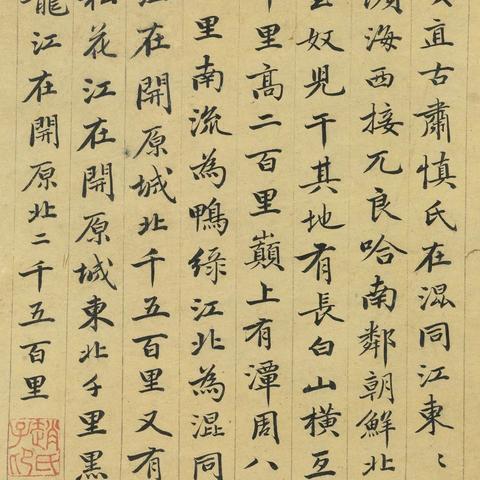 直古肅慎氏在混同江東〻
海西接兀良哈南鄰朝鮮北
至奴兒干其地有長白山橫亙
千里高二百里巔上有潭周八
里南流為鴨綠江北為混同
江在開原城北千五百里又有
松花江在開原城東北千里黑
龍江在開原北二千五百里
趙氏
子